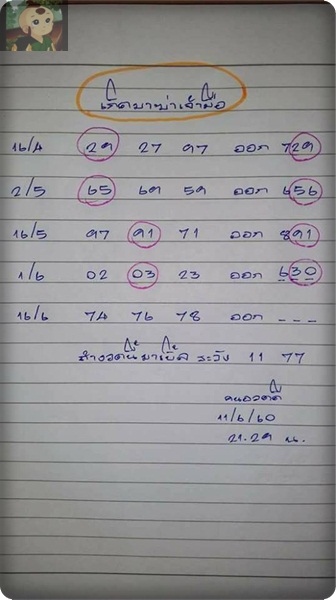 16/4 29 27 97 ออก 729
2/5 65 69 59 ออก 656
16/5 97 91 71 ออก 891
1/6 02 03 23 ออก 630
16/6 74 76 78 ออก _ _ _
ถ้างวดนี้มาเบิ้ล ระวัง 11 77
11/6/60
21.29 น.